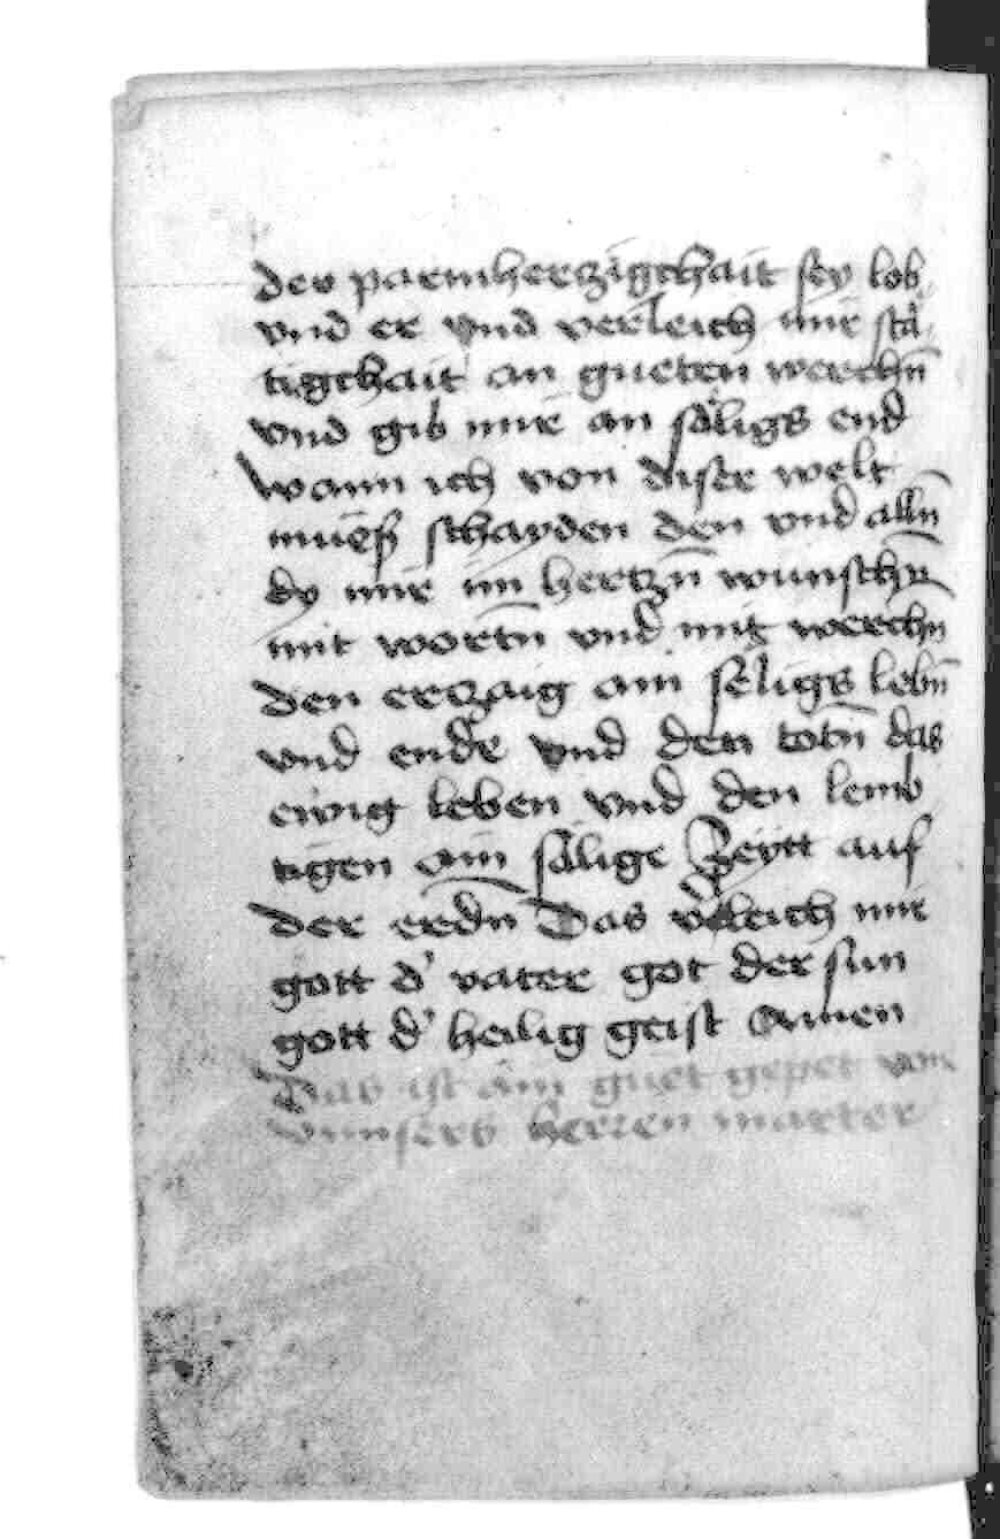 der parmherczigchait sey lob
vnd er vnd verleich mir stä
tigchait an gueten werchn̄
vnd gib mir an säligs end
wann ich von diser welt
mueſs schayden den vnd alln̄
dy mir im hertzn̄ wünschn̄
mit wortn̄ vnd mit werchn̄
den erczaig ain seligs lebn̄
vnd ende vnd den totn̄ das
ewig leben vnd den lemb
tigen ain sälige Zeytt auf
der erdn̄ Das v̓leich mir
gott d' vater got der sun
gott d' heilig geist Amen
Das ist ain guet gepet von
vnnsers herren marter